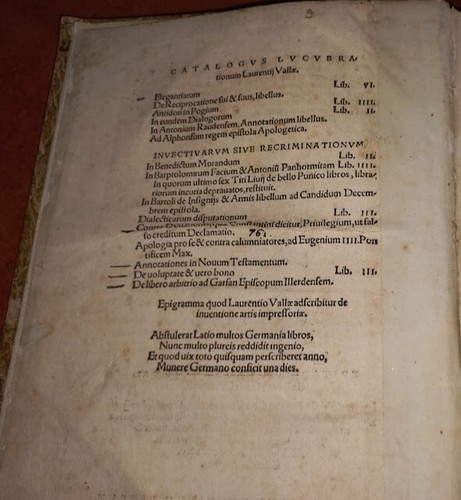 CATALOGVS LVCVBRA
tionum Laurentij Vallæ.
Elegantiarum Lib. VI.
De Reciprocatione sui & suus, libellus.
Antidoti in Pogium Lib. IIII.
In eundem Dialogorum Lib. II.
In Antonium Raudensem, Annotationum libellus.
Ad Alphonsum regem epistola Apologetica.
INVECTIVARVM SIVE RECRIMINATIONVM
In Benedictum Morandum Lib. II.
In Bartolomæum Facium & Antoniũ Panhormitam Lib. IIII.
In quorum ultimo sex Titi Liuij de bello Punico libros, libra/
riorum incuria deprauatos, restituit.
In Bartoli de Insignijs & Armis libellum ad Candidum Decem
brem epistola.
Dialecticarum disputationum Lib. III.
Constantini dicitur, Priuilegium, ut fal
so creditum Declamatio. 761.
Apologia pro se & contra calumniatores, ad Eugenium IIII. Pon
tificem Max.
Annotationes in Nouum Testamentum.
De uoluptate & uero bono Lib. III.
De libero arbitrio ad Garsan Episcopum Illerdensem.
Epigramma quod Laurentio Vallæ adscribitur de
inuentione artis impressoriæ.
Abstulerat Latio multos Germania libros,
Nunc multo plureis reddidit ingenio,
Et quod uix toto quisquam perscriberet anno,
Munere Germano conficit una dies.